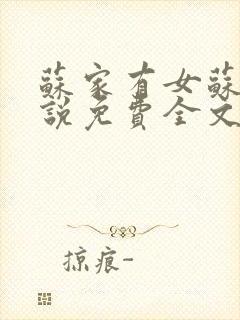 蘇家有女蘇
說免費全文
掠痕-